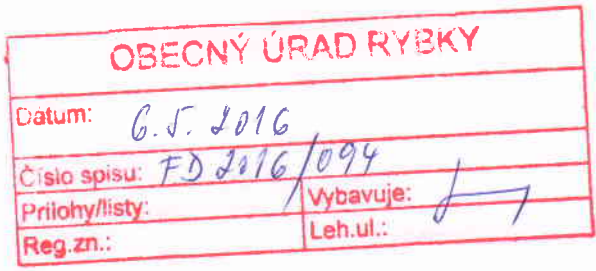 OBECNÝ ÚRAD RYBKY
Dátum: 6.5.2016
Číslo spisu: FD 2016/094
Prílohy/listy: Vybavuje:
Reg.zn.: Leh.ul.: